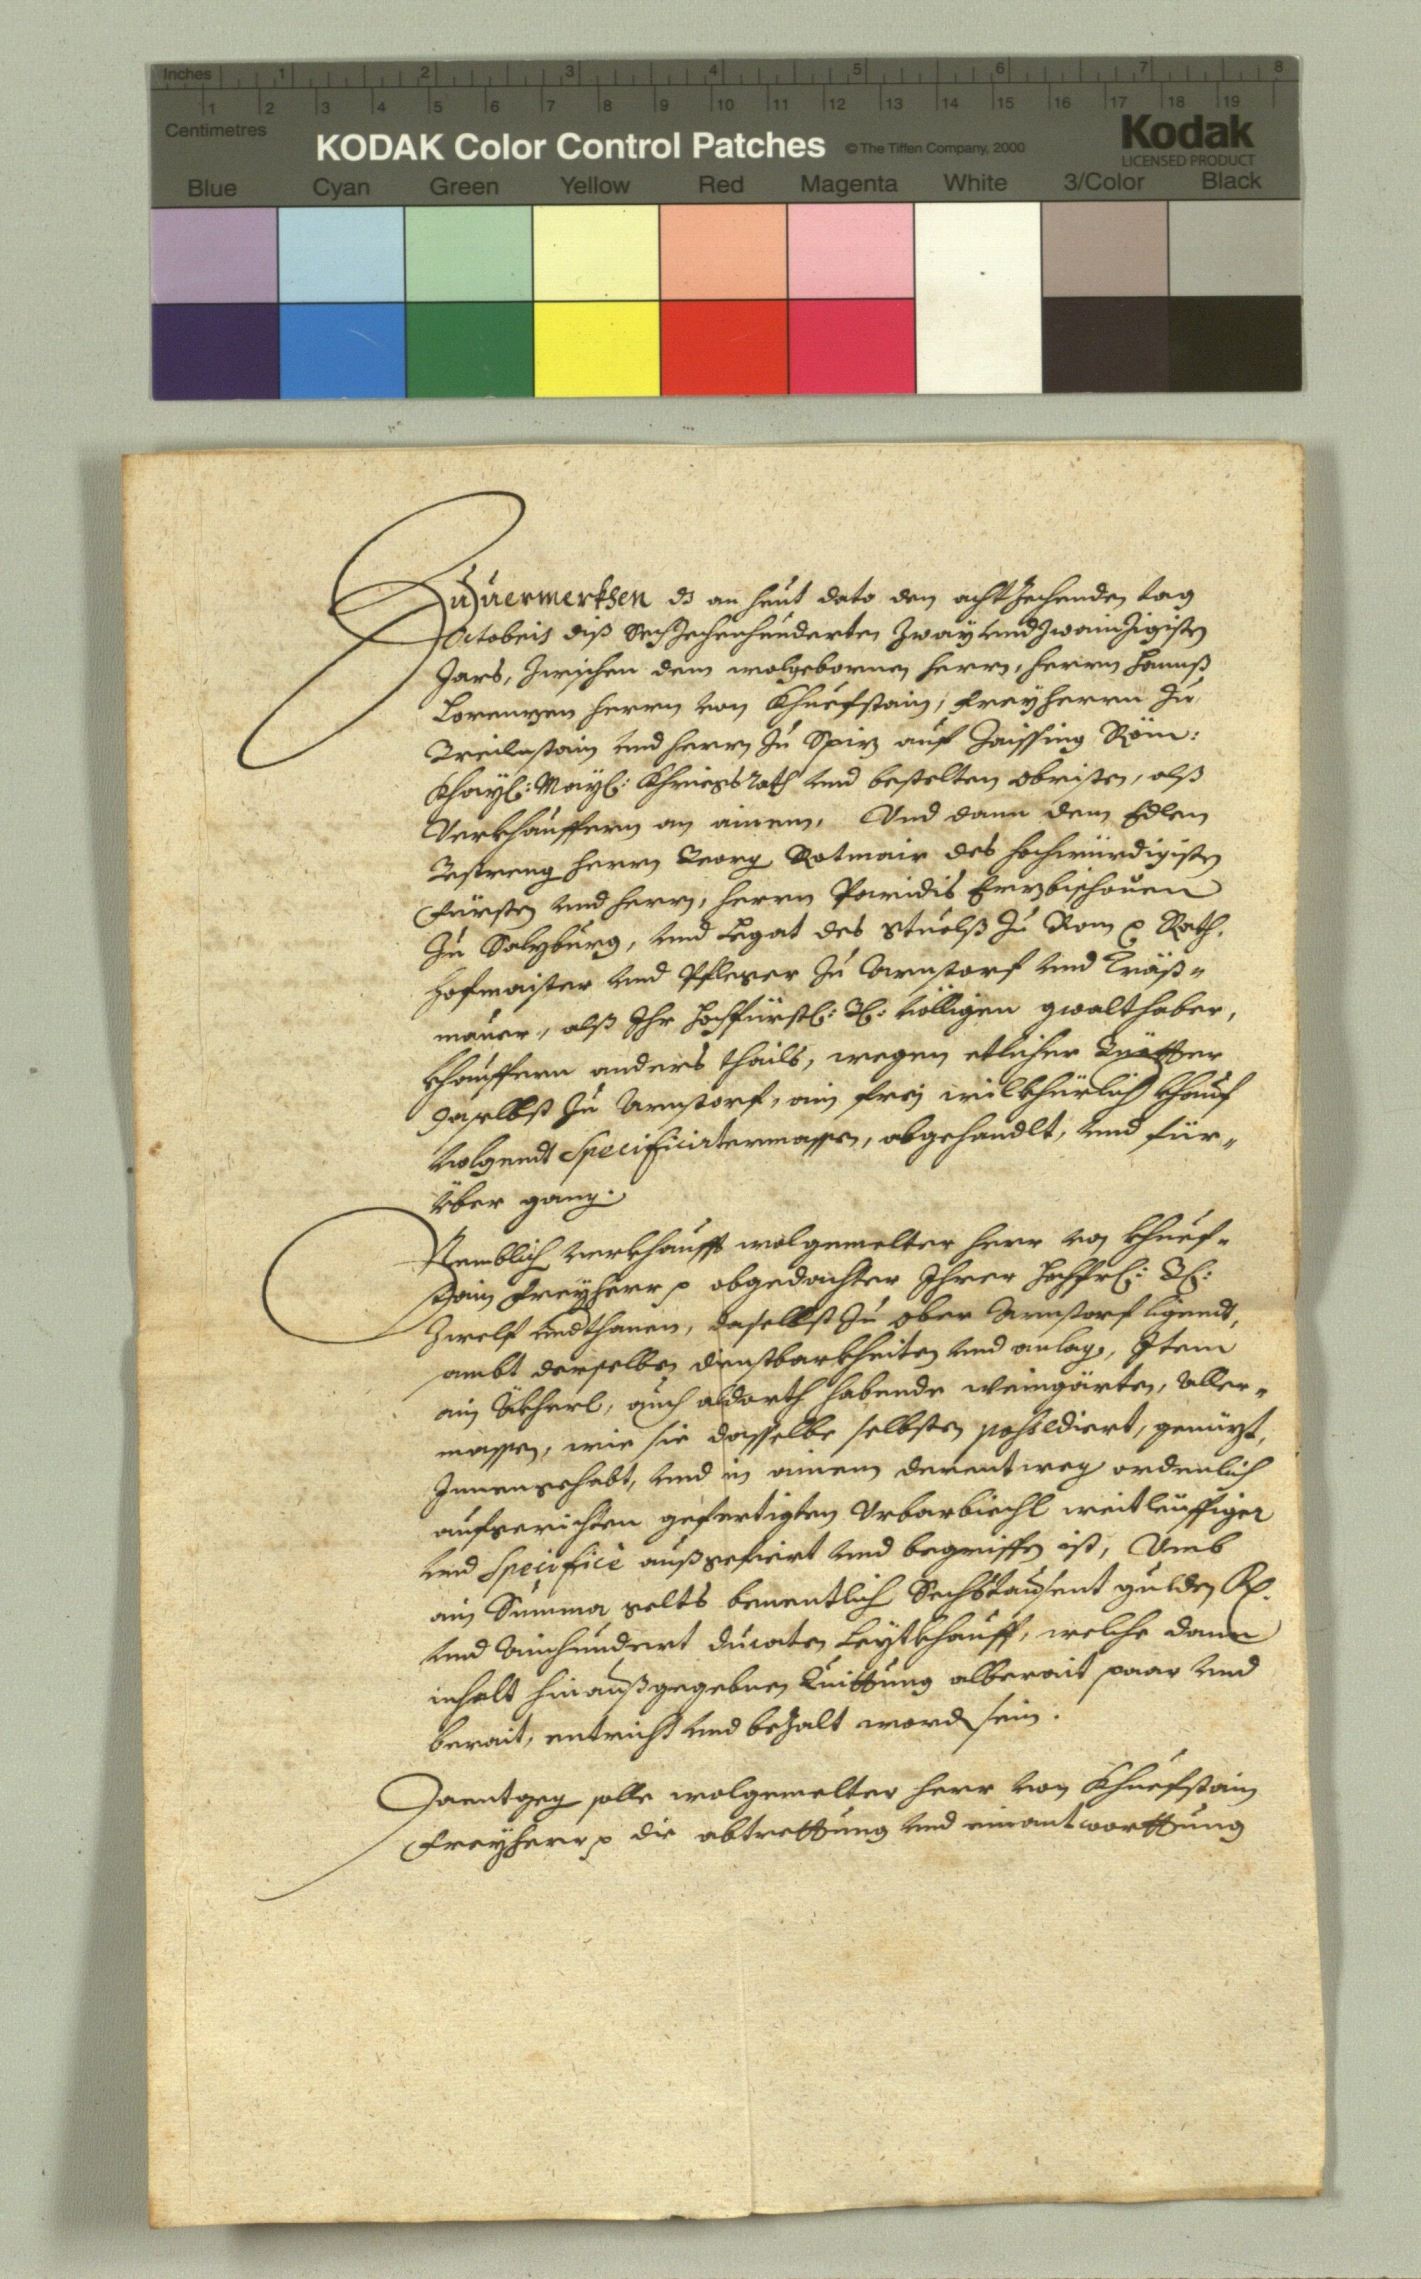 Inches 1 2 3 4 5 6 7 8
1 2 3 4 5 6 7 8 9 10 11 12 13 14 15 16 17 18 19
Centimetres
KODAK Color Control Patches © The Tiffen Company, 2000
Kodak
LICENSED PRODUCT
Blue Cyan Green Yellow Red Magenta White 3/Color Black
Zuuermerkhen dz an heut dato den achtzechenden tag
Octobris diß Sechzechenhunderten Zway und zwainzigisten
Jars, zwischen dem wolgebornen herrn, herrn Hannß
Lorenzen herrn von Khuefstain, Freyherrn zu
Greilenstain und herrn zu Spiz auf Zaissing Röm:
Khayl: Mayl: Khriegsrath und bestelten obristen, alß
Verkhauffern an ainem, Und dann dem Edlen
Gestreng herrn Georg Rotmair des hochwürdigisten
Fürsten und herrn, herrn Paridis Erzbischouen
zu Salzburg, und Legat des Stuelß zu Rom Rath,
Hofmaister und Pfleger zu Arnstorf und Träß-
mauer, alß Ihr Hochfürstl: Gl: völligen gwalthaber,
khauffern anders thails, wegen etlicher Güetter
daselbst zu Arnstorf, ain frej wilkhürlich khauf
volgendt Specificiertermassen, abgehandlt, und für-
über gang.
Nemblich verkhaufft wolgemelter herr von Khuef-
stain Freyherr obgedachter Ihrer Hochfrl: Gl:
Zwelf undthanen, daselbst zu ober Arnstorf ligendt,
sambt derselben dienstbarkheiten und anlag, Item
ain Äkherl, auch aldorth habende Weingärten, aller-
massen, wie sie dasselbe selbsten possediert, genüzt,
Innengehabt, und in ainem derentweg ordenlich
aufgerichten gefertigten Urbarbiechl weitleuffiger
und Specificè außgefiert und begriffen ist, Umb
ain Summa gelts benentlich Sechstausent gulden R.
und Ainhundert ducaten Leytkhauff, welche dann
inhalt hinaußgegebnen Quittung alberait paar und
berait, entricht und bezalt word sein.
Daentgeg solle wolgemelter herr von Khuefstain
Freyherr die abtrettung und einantworttung